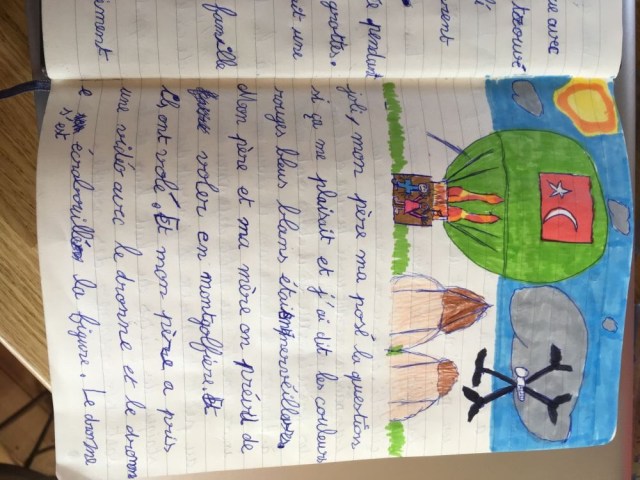 ue avec
trouvé
pendant
grottes.
une
famille
joli, mon père ma posé la question
si ça me plaisait et j'ai dit les couleurs
rouges bleus blans étaient mervéilluses.
Mon père et ma mère on prévu de
voler en montgolfière. Et
ils ont volé. Et mon père a pris
une vidéo avec le dronne et le dronne
est écrabouillé la figure. Le dronne